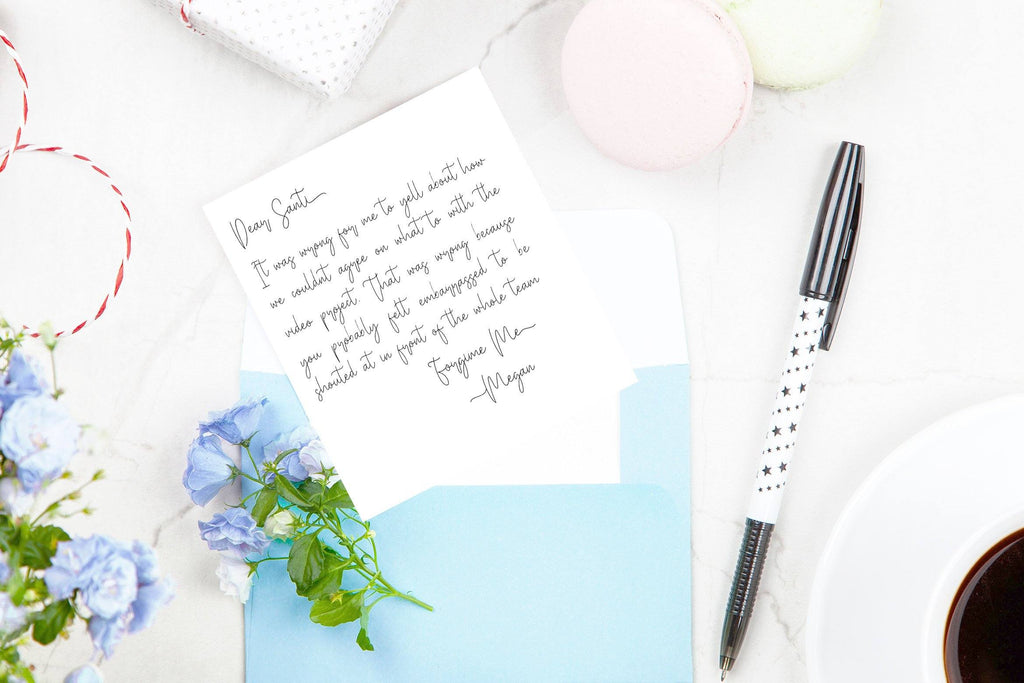 Dear Santi
It was wrong for me to yell about how
we couldnt agree on what to with the
video project. That was wrong because
you probably felt embarrassed to be
shouted at in front of the whole team
Forgime Me
-Megan